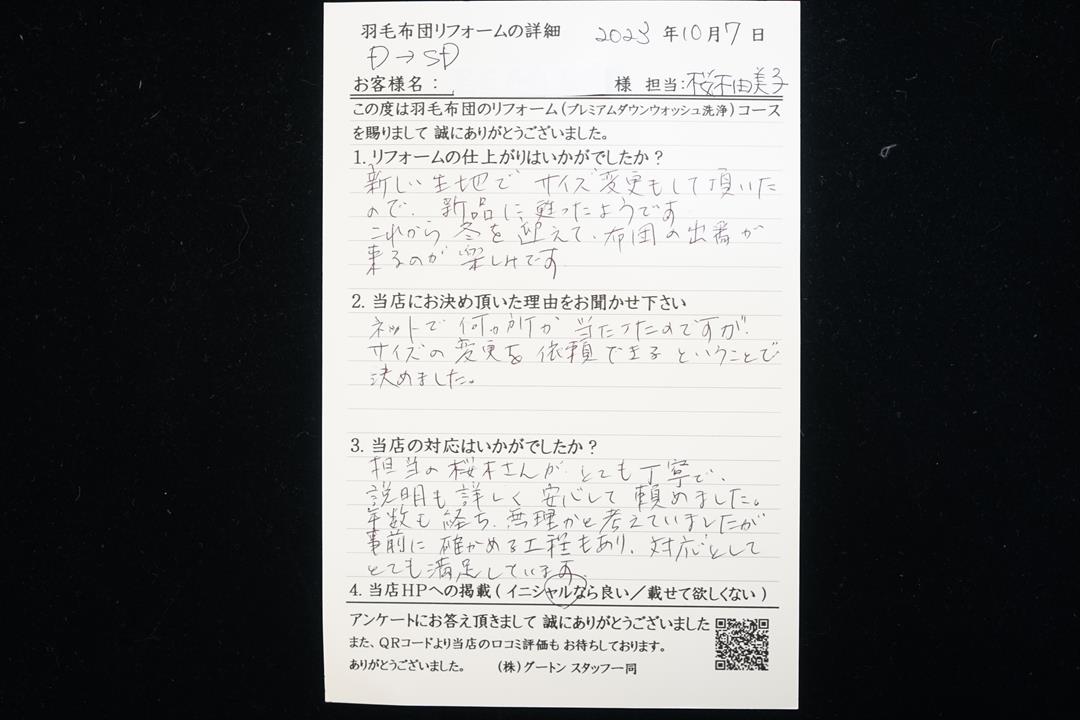 羽毛布団リフォームの詳細 2023年10月7日
D→SD
お客様名： 様 担当:桜木由美子
この度は羽毛布団のリフォーム(プレミアムダウンウォッシュ洗浄)コース
を賜りまして 誠にありがとうございました。
1. リフォームの仕上がりはいかがでしたか？
新しい生地で サイズ変更もして頂いた
ので、新品に甦ったようです
これから 冬を迎えて、布団の出番が
来るのが楽しみです
2. 当店にお決め頂いた理由をお聞かせ下さい
ネットで何ヵ所か当たったのですが、
サイズの変更を依頼できるということで
決めました。
3. 当店の対応はいかがでしたか？
担当の桜木さんが とても丁寧で、
説明も詳しく 安心して頼めました。
年数も経ち、無理かと考えていましたが
事前に確かめる工程もあり、対応として
とても満足しています
4. 当店HPへの掲載( イニシャルなら良い／載せて欲しくない )
アンケートにお答え頂きまして 誠にありがとうございました
また、QRコードより当店の口コミ評価も お待ちしております。
ありがとうございました。 (株)グートン スタッフ一同